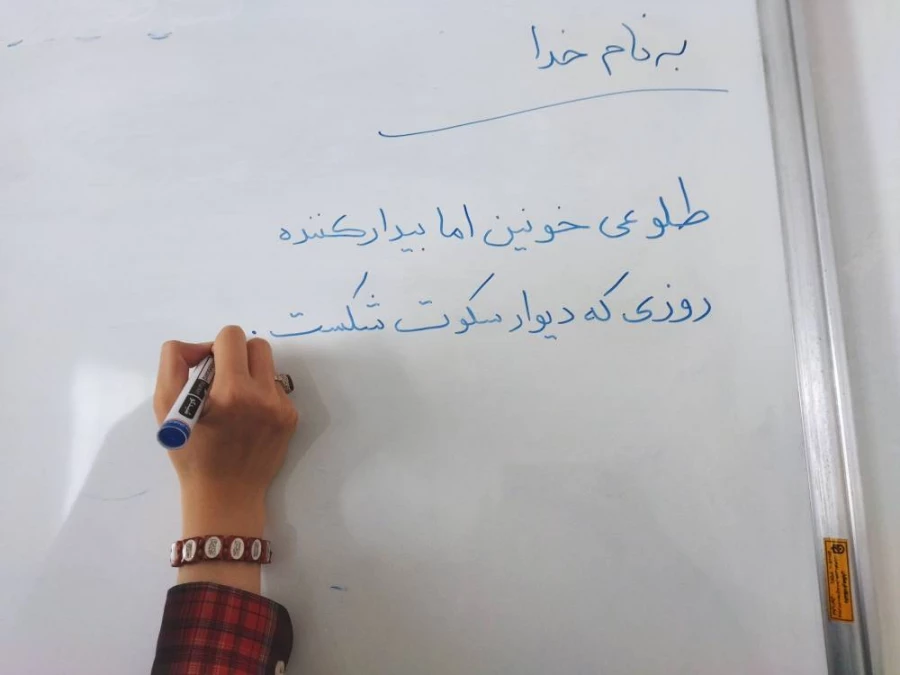 به نام خدا
طلوعی خونین اما بیدارکننده
روزی که دیوار سکوت شکست .